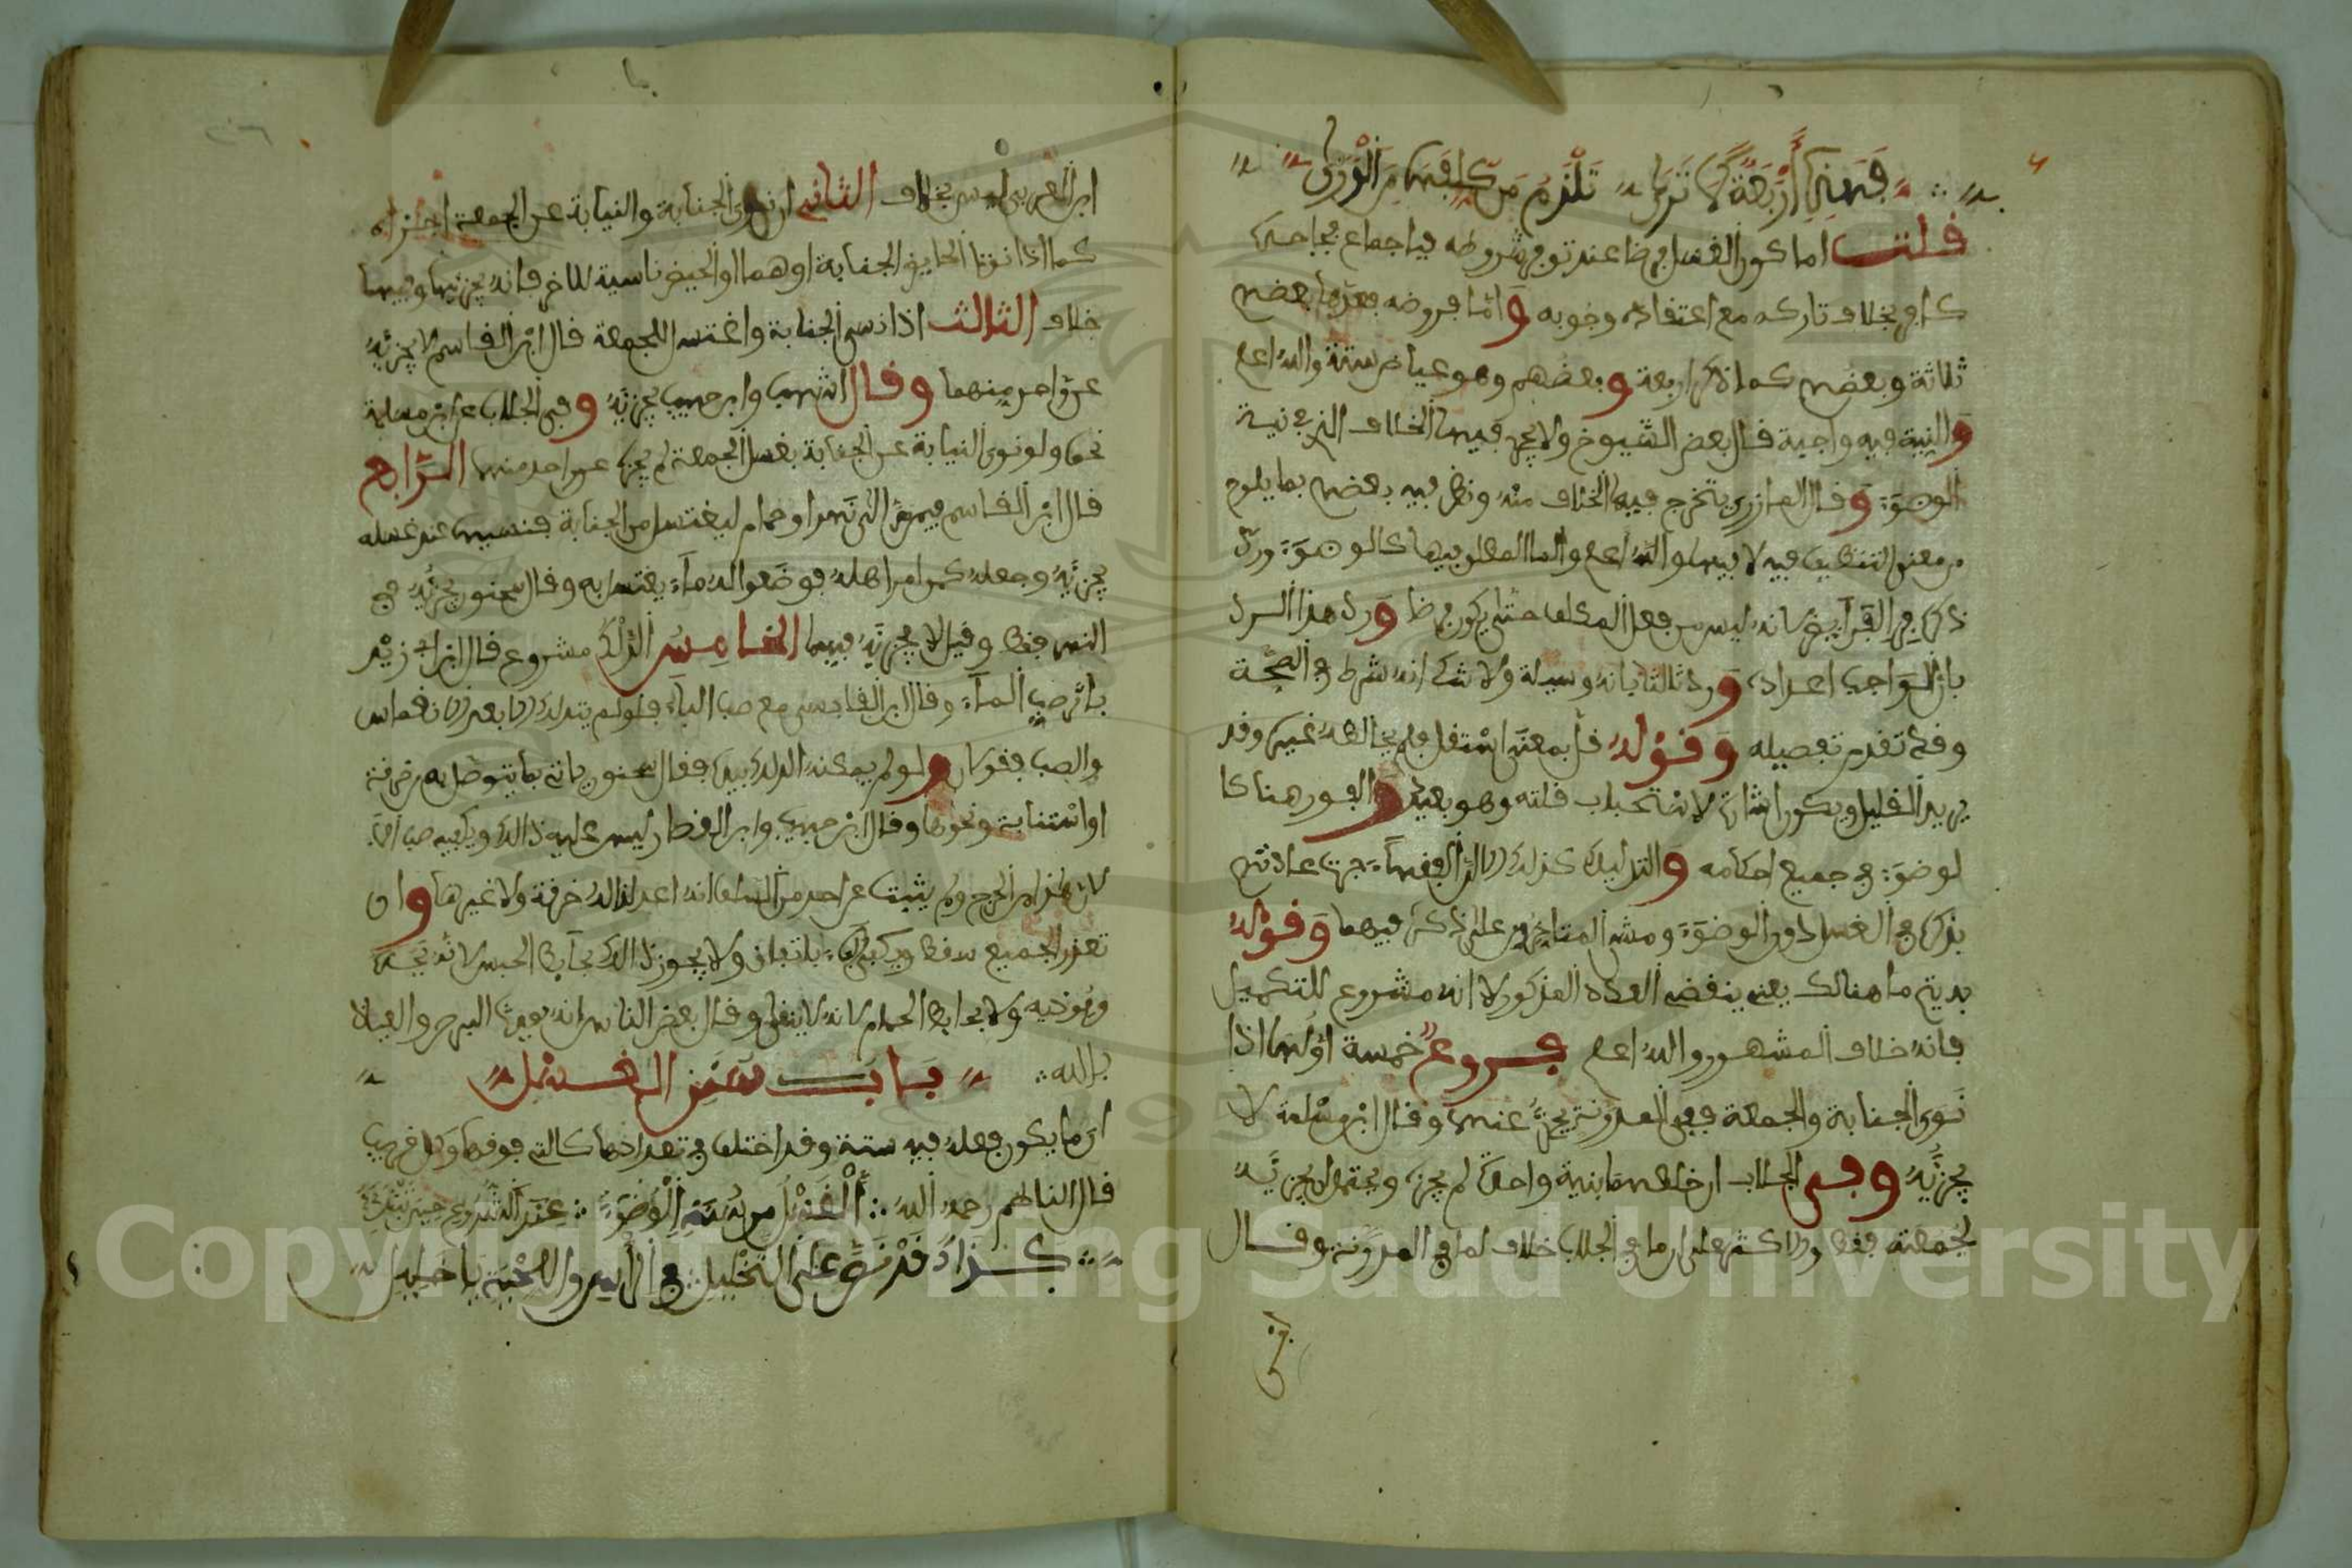 فهذه أربعة لا ترى تلزم من كلف من الورى
قلت اما كون الغسل فرضا عند توفر شروطه فباجماع فجاحده
كافر بخلاف تاركه مع اعتقاده وجوبه واما فروضه فعدها بعضهم
ثلاثة وبعضهم كما ذكر اربعة وبعضهم وهو عياض ستة والله اعلم
والنية فيه واجبة قال بعض الشيوخ ولا يجري فيها الخلاف الذي في نية
الوضوء وقال المازري يتخرج فيها الخلاف منه ونظر فيه بعضهم بما يلوح
من معنى التنظيف فيه لا فيها والله اعلم والماء المطلق فيها كالوضوء ورد
ذكره في الفرايض لانه ليس من فعل المكلف حتى يكون فرضا ورد هذا الرد
بان الواجب اعداده ورد ثالثا بانه وسيلة ولا شك انه شرط في الصحة
وقد تقدم تفصيله وقوله قل بمعنى استقل فلم يخالطه غيره وقد
يريد القليل ويكون اشارة لاستحباب قلته وهو بعيد والفور هنا كا
لوضوء في جميع احكامه والتدليك كذلك الا ان الفقهاء جرت عادتهم
بذكره في الغسل دون الوضوء ومشى المتاخرون على ذكره فيهما وقوله
بديتم ما هنالك يعني ينقضي العدد المذكور لا انه مشروع للتكميل
فانه خلاف المشهور والله اعلم فروع خمسة اولها اذا
نوى الجنابة والجمعة ففي المدونة يجزئ عنهما وقال ابن مسلمة لا
يجزئه وفي الجلاب ان خلطهما بنية واحدة لم يجزه ويحتمل ان يجزئه
لجمعته فقط والاكثر على ان ما في الجلاب خلاف لما في المدونة وقال
ابن العربي ليس بخلاف الثاني ان نوى الجنابة والنيابة عن الجمعة اجزاه
كما اذا نوتا الحايض الجنابة او هما او الحيض ناسية للاخر فانه يجزئها وفيها
خلاف الثالث اذا نسي الجنابة واغتسل للجمعة قال ابن القاسم لا يجزئه
عن واحد منهما وقال اشهب وابن حبيب يجزئه وفي الجلاب عن ابن مسلمة
نحوه ولو نوى النيابة عن الجنابة بغسل الجمعة لم يجزه عن واحد منهما الرابع
قال ابن القاسم فيمن اتى نهرا او حمام ليغتسل من الجنابة فنسيها عند غسله
يجزئه وجعله كمن امر اهله فوضعوا له ماء يغتسل به وقال سحنون يجزئه في
النهر فقط وقيل لا يجزئه فيهما الخامس الدلك مشروع قال ابن ابي زيد
باثر صب الماء وقال ابن القابسي مع صب الماء فلو لم يتدلك الا بعد الانغماس
والصب فقولان ولو لم يمكنه الدلك بيده فقال سحنون ياتي بما يتوصل به من خرقة
او استنابة ونحوها وقال ابن حبيب وابن القصار ليس عليه ذالك ويكفيه صب الماء
لان هذا من الحرج ولم يثبت عن احد من السلف انه اعد لذالك خرقة ولا غيرها وان
تعذر الجميع سقط ويكفي الماء باتفاق ولا يجوز ذالك بحايط الحبس لانه يجسه
ويوذيه ولا بحايط الحمام لانه لا ينقي وقال بعض الناس انه يورث البرص والعياذ
بالله
باب سنن الغسل
ان ما يكون فعله فيه ستة وقد اختلف في تعدادها كالتي فوقها وكل قريب
قال الناظم رحمه الله الغسل من سنته الوضوء عند الشروع حين تبتدئ
كذاك قد نص على التخليل في الراس واللحية يا خليل